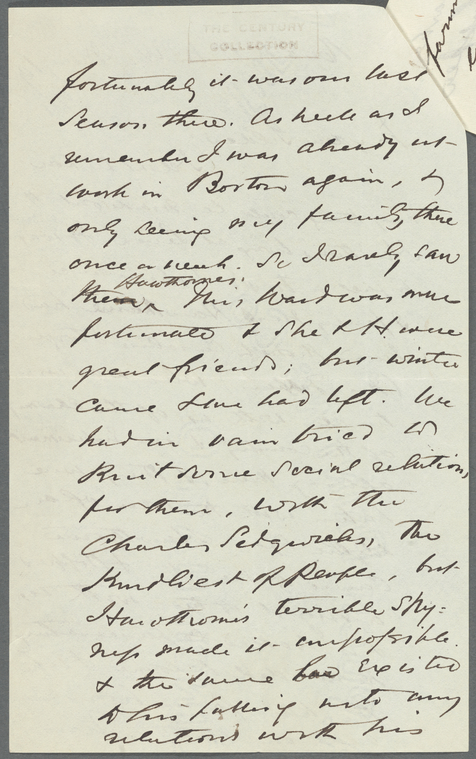 THE CENTURY
COLLECTION
fortunately it was our last
season there. As well as I
remember I was already at
work in Boston again, &
only seeing my family there
once a week. So I rarely saw
the Hawthornes.
Mrs Ward was more
fortunate & she & H. were
great friends; but winter
came & we had left. We
had in vain tried to
knit some social relations,
for them, with the
Charles Sedgwicks, the
Kindliest of People, but
Hawthorne's terrible shy-
ness made it impossible.
& the same existed
to his falling into any
relations with his